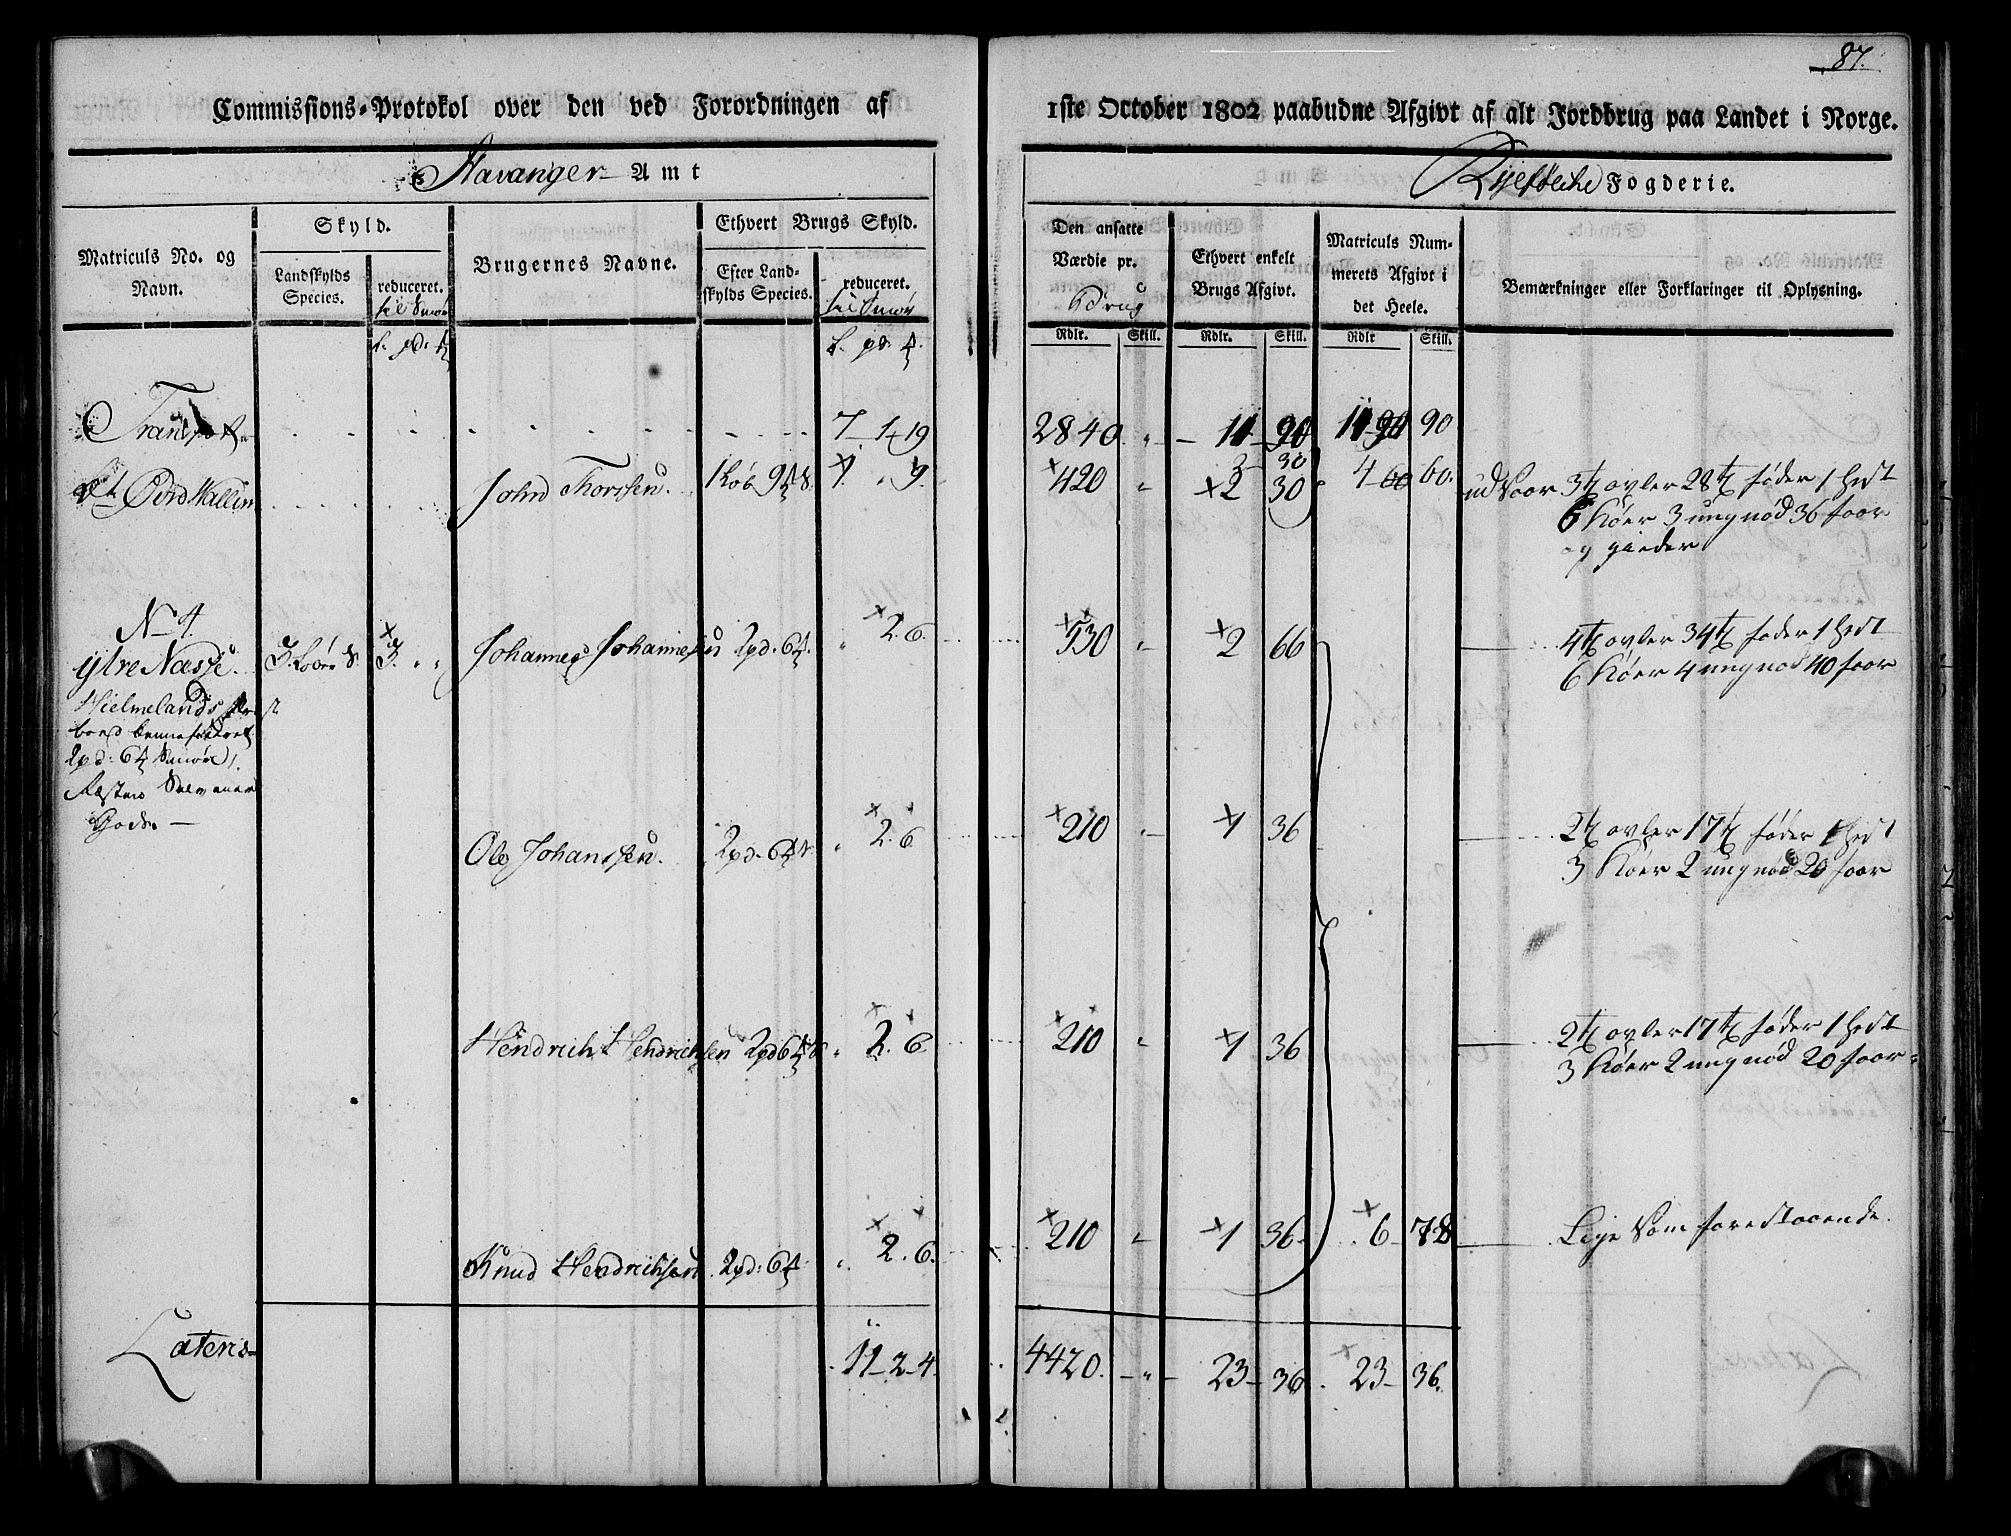 87.
Commissions-Protokol over den ved Forordningen af 1ste October 1802 paabudne Afgivt af alt Jordbrug paa Landet i Norge.
Stavanger Amt
Fogderie.
Matriculs No. og Navn.
Skyld.
Landskylds Species.
reduceret. til Smør
Brugernes Navne.
Ethvert Brugs Skyld.
Efter Landskylds Species.
reduceret. til Smør
Den ansatte Værdie pr. Brug
Ethvert enkelt Brugs Afgivt.
Matriculs Nummerets Afgivt i det Heele.
Bemærkninger eller Forklaringer til Oplysning.
Rdlr. Skill. Rdlr. Skill. Rdlr Skill.
Transport 7 1 19 2840 " 11 90 11 90
John Thorssen 1 " 9 420 " 2 30 4 60 udsaar 3 t avler 28 t føder 1 Hest
6 Køer 3 ungnød 36 faar
og gieder
No 4.
ytre Nassе. 3 Løber S. 3. " " Johannes Johannessen 2 pd. 6 " 2. 6. 530 " 2 66 4 t avler 34 t føder 1 Hest
6 Køer 4 ungnød 40 faar
Hielmelands
2 pd: 6 Smør
Gods.
Ole Johanssen. 2 pd. 6 " 2. 6 210 " 1 36 2 t avler 17 t føder 1 Hest
3 Køer 2 ungnød 20 faar
Hendrich Hendrichsen 2 pd 6 " 2. 6 210 " 1 36 2 t avler 17 t føder 1 Hest
3 Køer 2 ungnød 20 faar
Knud Hendrichsen 2 pd: 6 " 2. 6. 210 " 1 36 6 78 Lige som forestaaende.
Lateris 11 2 4. 4420. " 23 36 23 36.